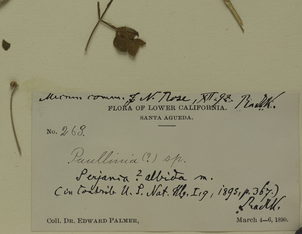 comm. J. N. Rose, XII. 93. Radlk.
FLORA OF LOWER CALIFORNIA.
SANTA AGUEDA.
No. 263.
Paullinia (?) sp.
Serjania ? albida m.
(in Contrib. U. S. Nat. Hb. I, 9, 1895, p. 367.)
Radlk.
Coll. DR. EDWARD PALMER, March 4–6, 1890.